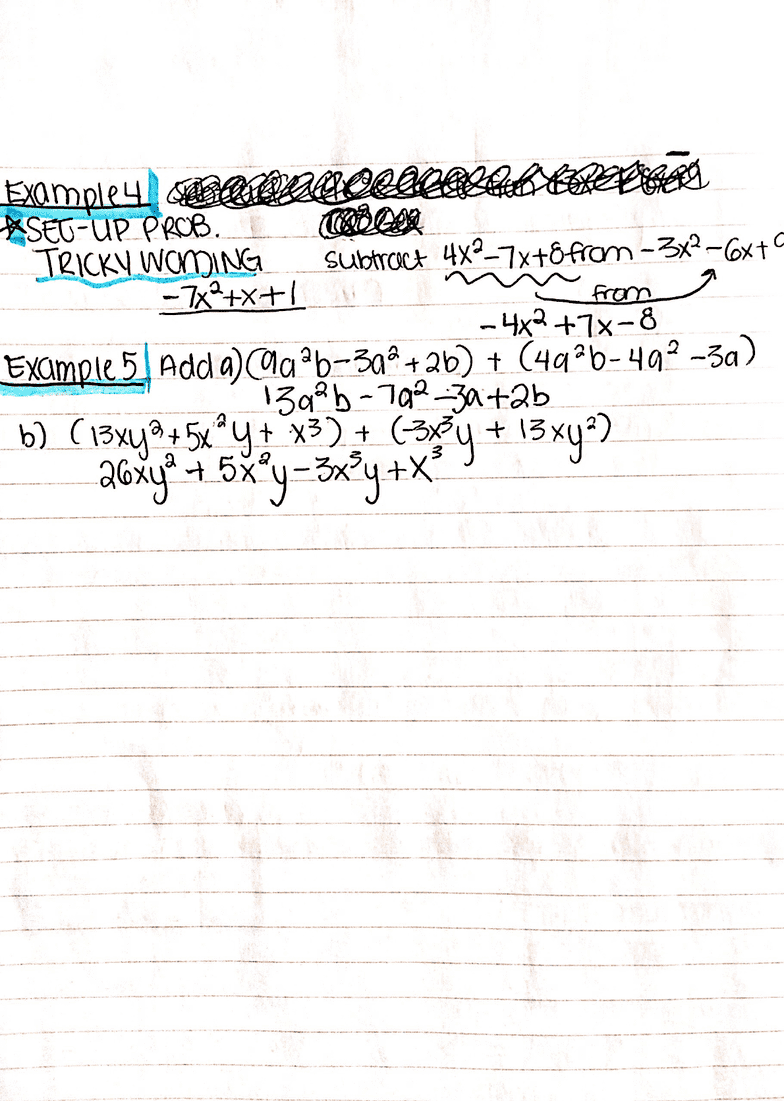 Example 4
*SET-UP PROB.
TRICKY WORDING subtract 4x²-7x+8 from -3x²-6x+
-7x²+x+1 from
-4x²+7x-8
Example 5 Add a) (9a²b-3a²+2b) + (4a²b-4a²-3a)
13a²b-7a²-3a+2b
b) (13xy²+5x²y+x³) + (-3x³y+13xy²)
26xy²+5x²y-3x³y+x³